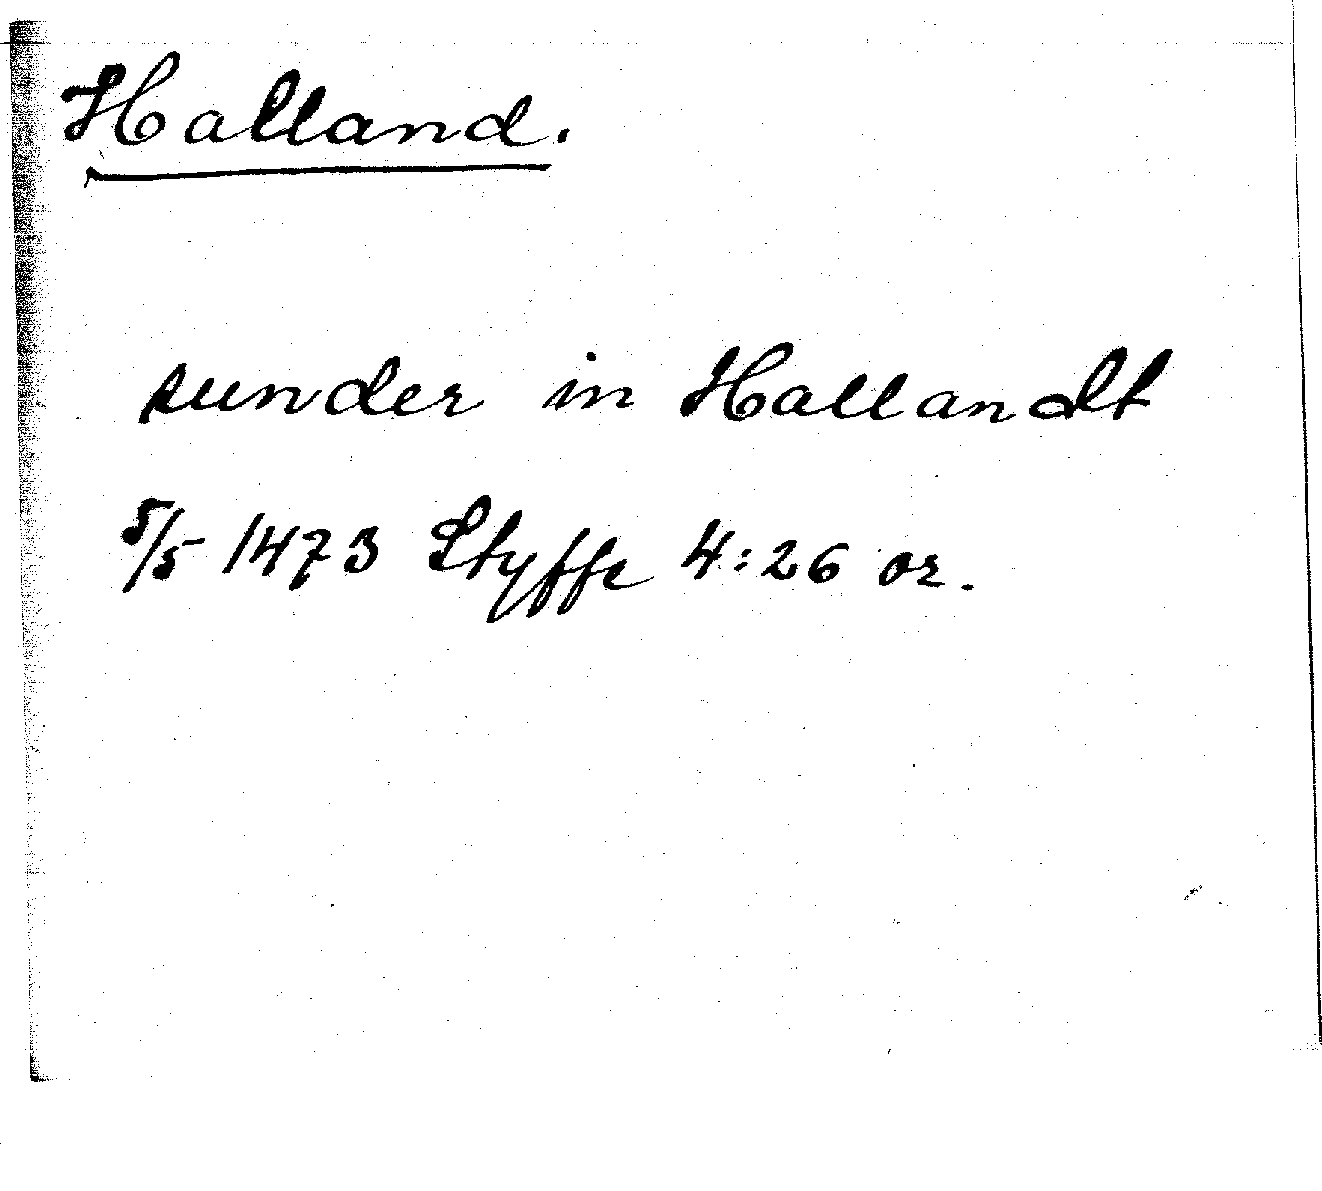 Halland.
sunder in Hallandt
5/5 1473 Styffe 4:26 or.